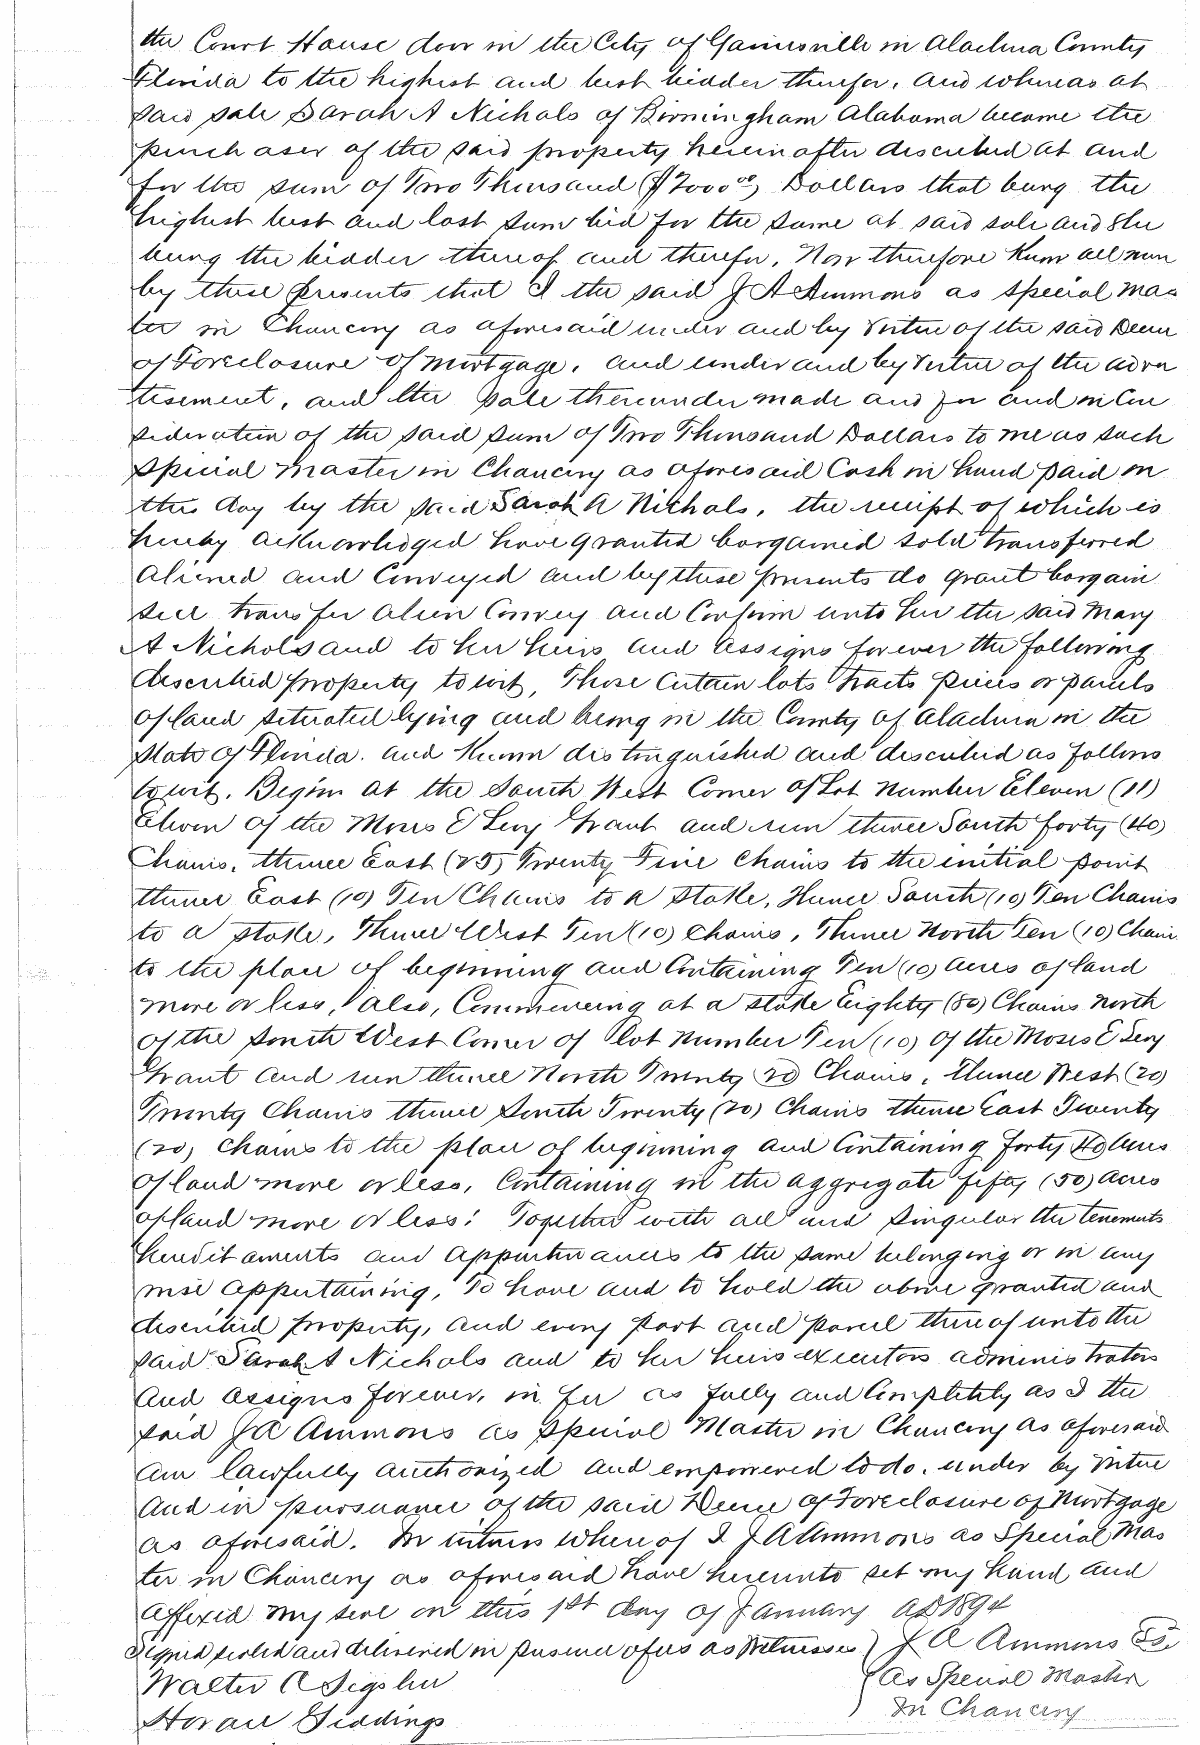 the Court House door in the City of Gainesville in Alachua County
Florida to the highest and best bidder therefor, and whereas at
said sale Sarah A Nichols of Birmingham Alabama became the
purchaser of the said property hereinafter described at and
for the sum of Two Thousand ($2000.00) Dollars that being the
highest best and last sum bid for the same at said sale and She
being the bidder thereof and therefor, Now therefore Know all men
by these presents that I the said J A Ammons as special Mas
ter in Chancery as aforesaid under and by virtue of the said Decree
of Foreclosure of Mortgage, and under and by virtue of the adver
tisement, and the sale thereunder made and for and in Con
sideration of the said sum of Two Thousand Dollars to me as such
Special Master in Chancery as aforesaid Cash in hand paid on
this day by the said Sarah A Nichols, the receipt of which is
hereby acknowledged have granted bargained sold transferred
Aliened and Conveyed and by these presents do grant bargain
sell transfer alien Convey and Confirm unto her the said Mary
A Nichols and to her heirs and assigns forever the following
described property to wit, Those Certain lots tracts pieces or parcels
of land situated lying and being in the County of Alachua in the
State of Florida. and Known distinguished and described as follows
to wit. Begin at the South West Corner of Lot Number Eleven (11)
Eleven of the Moses E Levy Grant and run thence South forty (40)
Chains, thence East (25) Twenty Five Chains to the initial point
thence East (10) Ten Chains to a Stake, thence South (10) Ten Chains
to a stake, Thence West Ten (10) Chains, Thence North Ten (10) Chains
to the place of beginning and Containing Ten (10) Acres of land
more or less, also, Commencing at a stake Eighty (80) Chains North
of the South West Corner of lot Number Ten (10) of the Moses E Levy
Grant and run thence North Twenty (20) Chains, thence West (20)
Twenty Chains thence South Twenty (20) Chains thence East Twenty
(20) Chains to the place of beginning and Containing Forty (40) Acres
of land more or less, Containing in the aggregate fifty (50) acres
of land more or less: Together with all and singular the tenements
heredit aments and appurtenances to the same belonging or in any
wise appertaining, To have and to hold the above granted and
described property, and every part and parcel thereof unto the
said Sarah A Nichols and to her heirs executors administrators
and assigns forever, in fee as fully and Completely as I the
said J A Ammons as Special Master in Chancery as aforesaid
am lawfully authorized and empowered to do. under by virtue
and in pursuance of the said Decree of Foreclosure of Mortgage
as aforesaid. In witness whereof I J A Ammons as Special Mas
ter in Chancery as aforesaid have hereunto set my hand and
affixed my seal on this 1st day of January AD 1894
Signed sealed and delivered in presence of us as Witnesses } J A Ammons
Walter as Special Master
Horace Giddings In Chancery